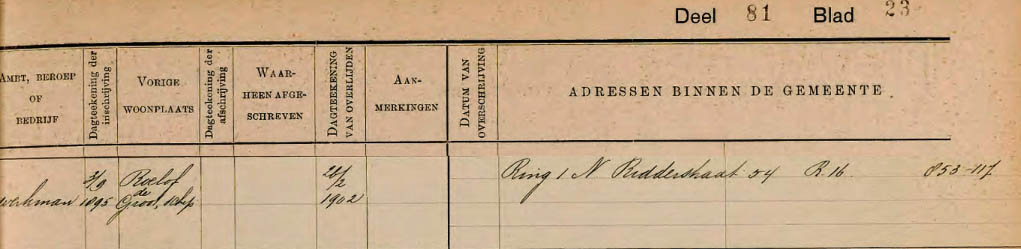 Deel 81 Blad 23
AMBT, BEROEP
OF
BEDRIJF
Dagteekening der
inschrijving
VORIGE
WOONPLAATS
Dagteekening der
afschrijving
WAAR-
HEEN AFGE-
SCHREVEN
DAGTEEKENING
VAN OVERLIJDEN
AAN-
MERKINGEN
DATUM VAN
OVERSCHRIJVING
ADRESSEN BINNEN DE GEMEENTE
werkman
3/9
1895
Roelof
de
Groot, schip
2/2
1902
Ring 1 N Ridderstraat 54 R. 16. 853-117